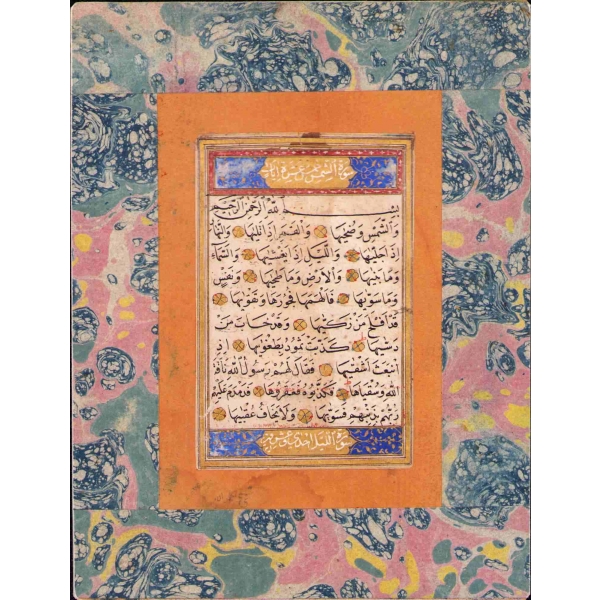 سورة الشمس خمس عشرة آيات
بسم الله الرحمن الرحيم
والشمس وضحيها والقمر اذا تليها والنهار
اذا جليها والليل اذا يغشيها والسماء
وما بنيها والارض وما طحيها ونفس
وما سويها فالهمها فجورها وتقويها
قد افلح من زكيها وقد خاب من
دسيها كذبت ثمود بطغويها اذ
انبعث اشقيها فقال لهم رسول الله ناقة
الله وسقياها فكذبوه فعقروها فدمدم عليهم
ربهم بذنبهم فسويها ولا يخاف عقبيها
سورة الليل احدى وعشرين